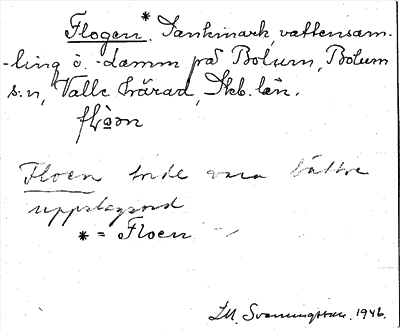 Flogen.* Sankmark, vattensam-
-ling o. -damm på Bolum, Bolum
s:n, Valle härad, Skb. län.
Floen torde vara bättre
uppslagsord
* = Floen
Svenningsson. 1946.